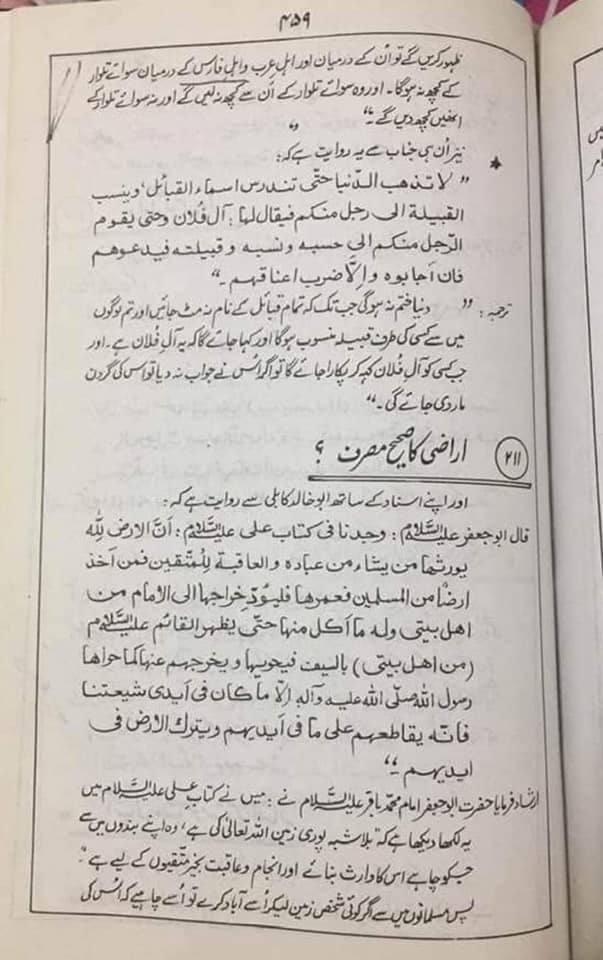 ۴۵۹
ظہور کریں گے تو اُن کے درمیان اور اہلِ عرب و اہلِ فارس کے درمیان سوائے تلوار
کے کچھ نہ ہوگا۔ اور وہ سوائے تلوار کے اُن سے کچھ نہ لیں گے اور نہ سوائے تلوار کے
انھیں کچھ دیں گے۔"
نیز اُن ہی جناب سے یہ روایت ہے کہ:
" لا تذهب الدّنیا حتّی تندرس اسماء القبائل، وینسب
القبیلة الی رجل منکم فیقال لها: آل فلان وحتی یقوم
الرّجل منکم الی حسبه ونسبه و قبیلته فیدعوهم
فان أجابوه والّا ضرب اعناقهم۔"
ترجمہ: " دنیا ختم نہ ہوگی جب تک کہ تمام قبائل کے نام نہ مٹ جائیں اور تم لوگوں
میں سے کسی کی طرف قبیلہ منسوب ہوگا اور کہا جائے گا کہ یہ آلِ فلان ہے۔ اور
جب کسی کو آلِ فلان کہہ کر پکارا جائے گا تو اگر اُس نے جواب نہ دیا تو اس کی گردن
مار دی جائے گی۔"
۲۱۱ اراضی کا صحیح مصرف ؟
اور اپنے اسناد کے ساتھ ابو خالد کابلی سے روایت ہے کہ:
قال ابو جعفر علیہ السّلام: وجدنا فی کتاب علی علیہ السّلام: أنّ الارض للّٰه
یورثها من یشاء من عباده والعاقبة للمتّقین فمن أخذ
ارضًا من المسلمین فعمرها فلیؤدّ خراجها الی الامام من
اهل بیتی وله ما أکل منها حتّی یظهر القائم علیہ السّلام
(من اهل بیتی) بالسیف فیحویها و یخرجهم عنها کما حواها
رسول اللّٰه صلّی اللّٰه علیه وآله الّا ما کان فی أیدی شیعتنا
فانّه یقاطعهم علی ما فی أیدیهم ویترك الارض فی
ایدیهم۔"
ارشاد فرمایا حضرت ابو جعفر امام محمد باقر علیہ السّلام نے: میں نے کتاب علی علیہ السّلام میں
یہ لکھا دیکھا ہے کہ "بلا شبہ پوری زمین اللہ تعالیٰ کی ہے، وہ اپنے بندوں میں سے
جسکو چاہے اس کا وارث بنائے اور انجام و عاقبت بخیر متقیوں کے لیے ہے"
پس مسلمانوں میں سے اگر کوئی شخص زمین لیکر اُسے آباد کرے تو اُسے چاہیے کہ اُس کی